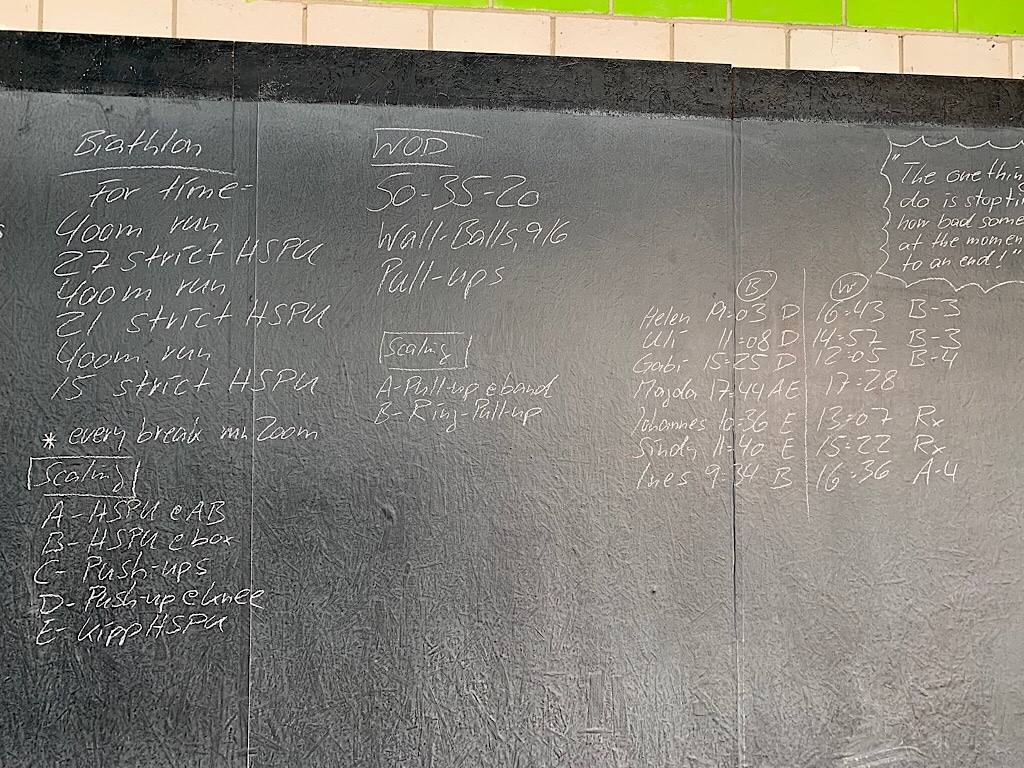 Biathlon
For time:
400m run
27 strict HSPU
400m run
21 strict HSPU
400m run
15 strict HSPU
* every break run 200m
Scaling
A - HSPU @ AB
B - HSPU @ box
C - Push-ups
D - Push-up @ knee
E - Kipp HSPU
WOD
50-35-20
Wall-Balls, 9/6
Pull-ups
Scaling
A - Pull-up @ band
B - Ring-Pull-up
B W
Helen :03 D 16:43 B-3
Uli 11:08 D 14:57 B-3
Gabi 15:25 D 12:05 B-4
Magda 17:44 AE 17:28
Johannes 10:36 E 13:07 Rx
Sindy 11:40 E 15:22 Rx
Ines 9:34 B 16:36 A-4
"The one thin
do is stop ti
how bad some
at the momen
to an end!"